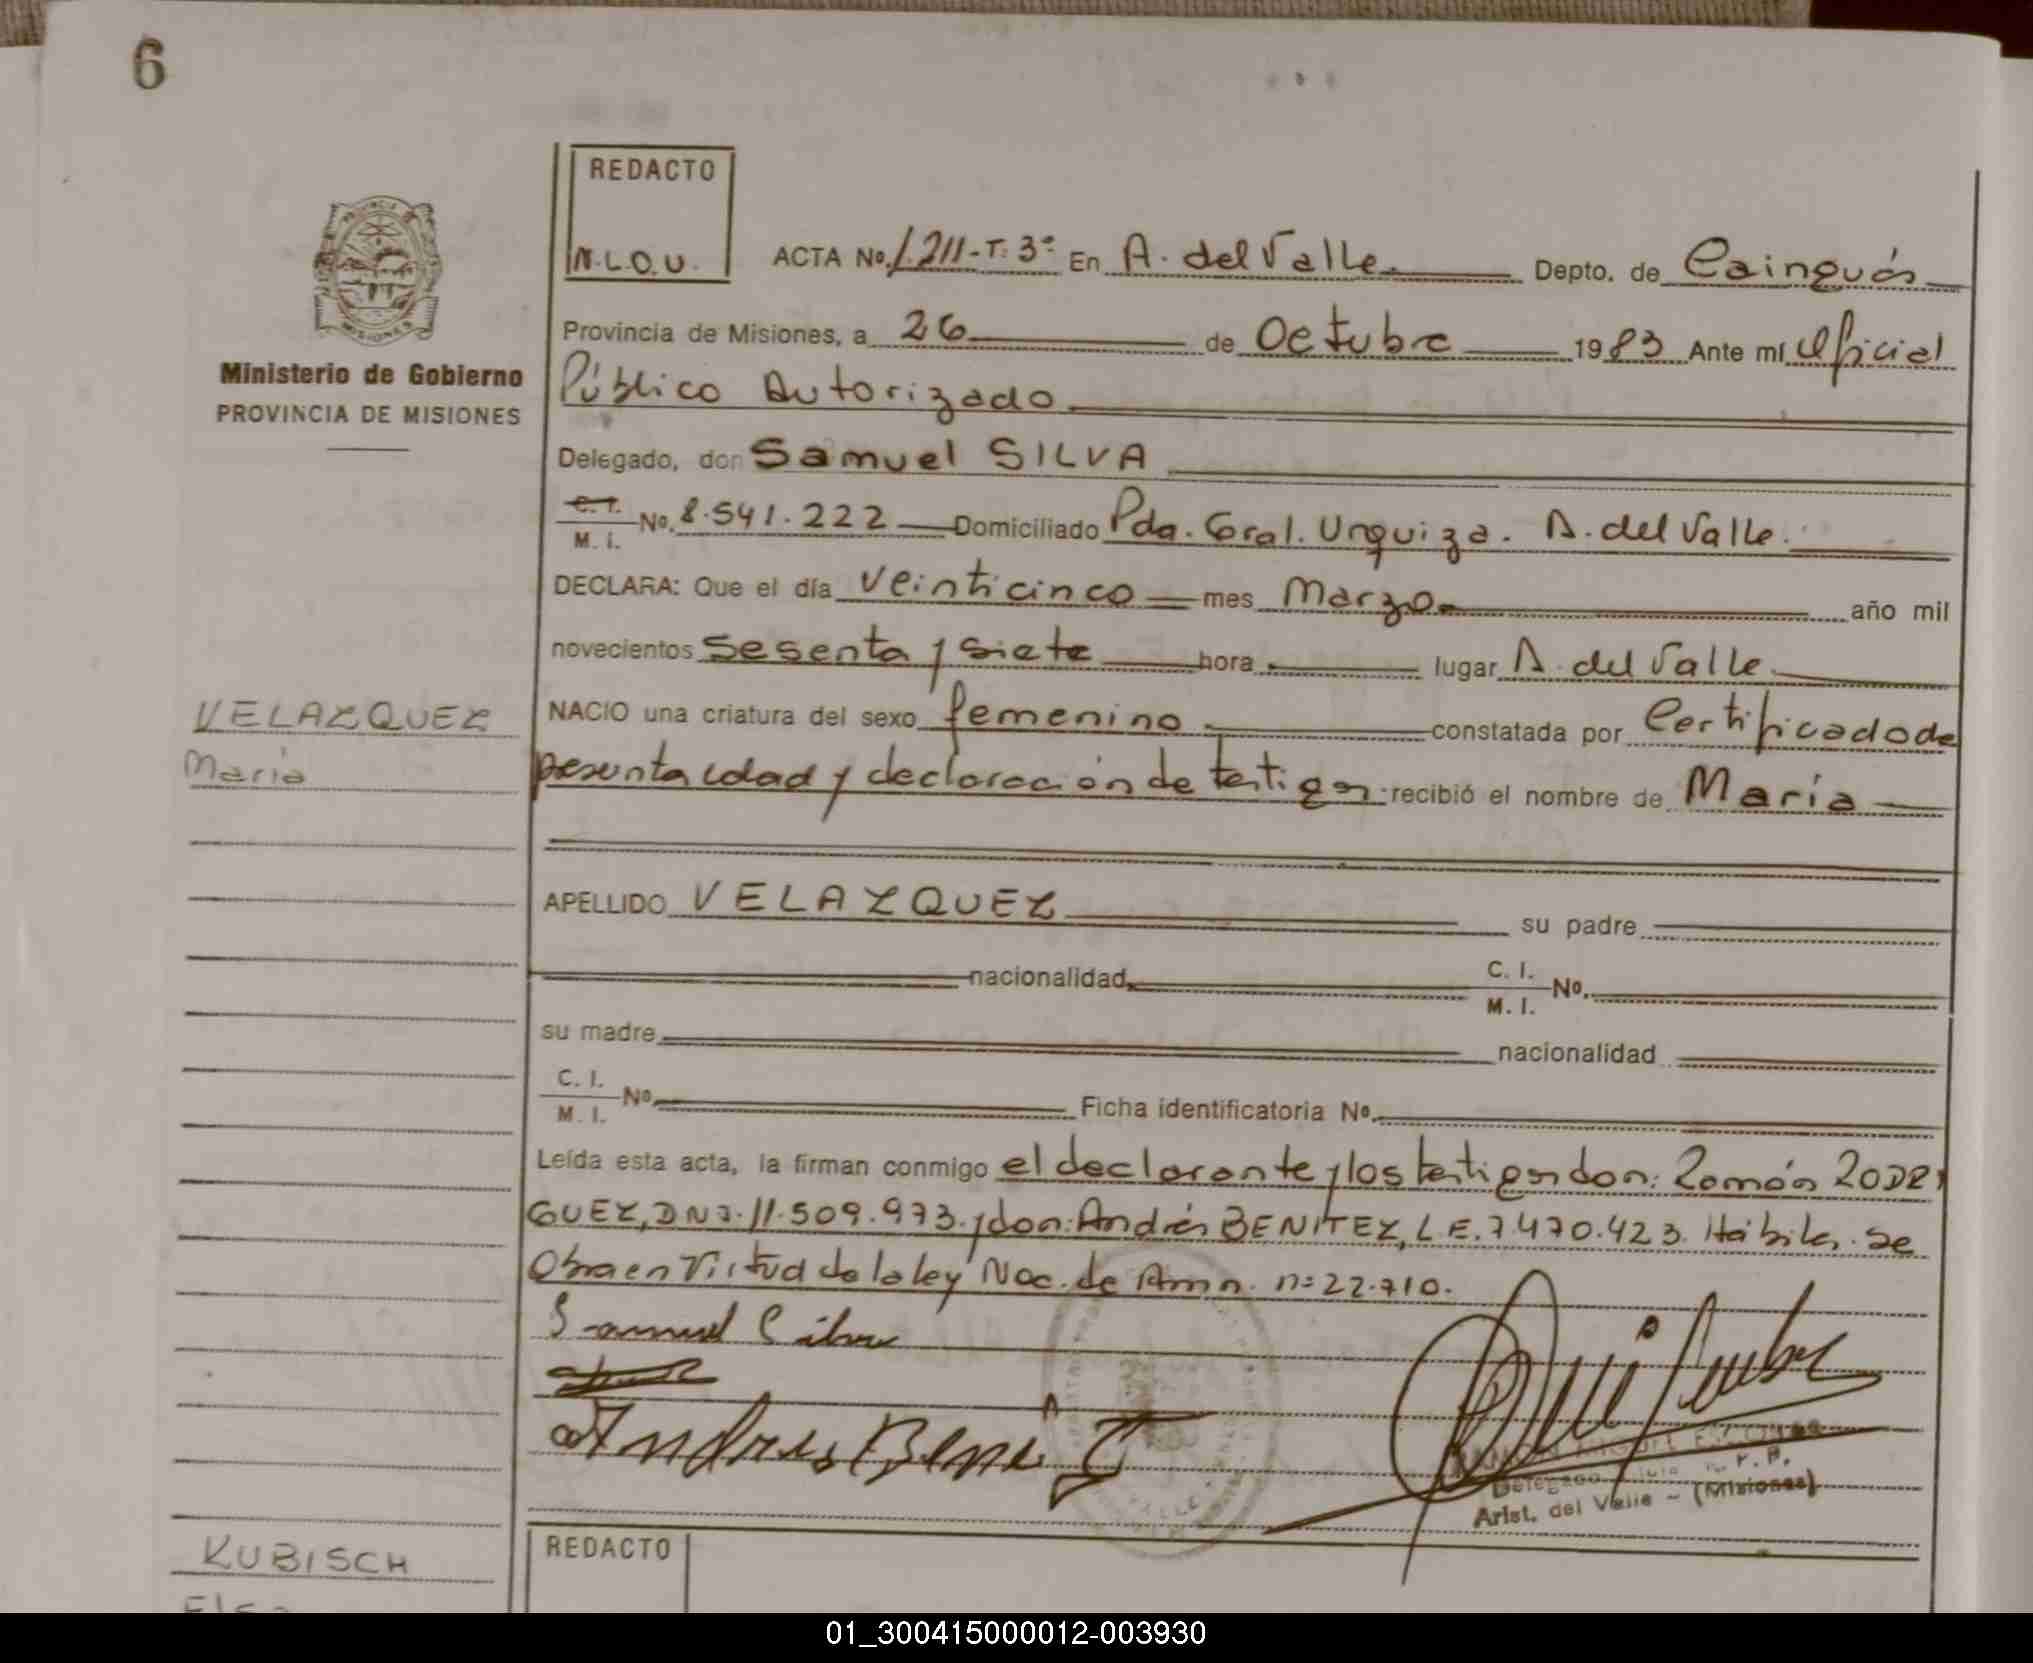 6
REDACTO
N.L.O.U.
ACTA No. 1.211-T. 3º En A. del Valle Depto. de Cainguás
Provincia de Misiones, a 26 de Octubre 1983 Ante mí Oficial
Público Autorizado
Ministerio de Gobierno
PROVINCIA DE MISIONES
Delegado, don Samuel SILVA
C. I. M. I. No. 8.541.222 Domiciliado Pda. Gral. Urquiza. A. del Valle.
DECLARA: Que el día veinticinco mes Marzo año mil
novecientos sesenta y siete hora lugar A. del Valle
VELAZQUEZ
María
NACIO una criatura del sexo femenino constatada por Certificado de
presunta edad y declaración de testigos recibió el nombre de María
APELLIDO VELAZQUEZ su padre
nacionalidad C. I. M. I. No.
su madre nacionalidad
C. I. M. I. No. Ficha identificatoria No.
Leída esta acta, la firman conmigo el declarante y los testigos don: Ramón RODRI
GUEZ, DNI. 11.509.973. y don: Andrés BENITEZ, L.E. 7.470.423. Hábiles. Se
Obra en Virtud de la ley Nac. de Amn. nº 22.710.
Samuel Silva
Andres Benitez
Delegado
Arist. del Valle - (Misiones)
KUBISCH
REDACTO
01_300415000012-003930